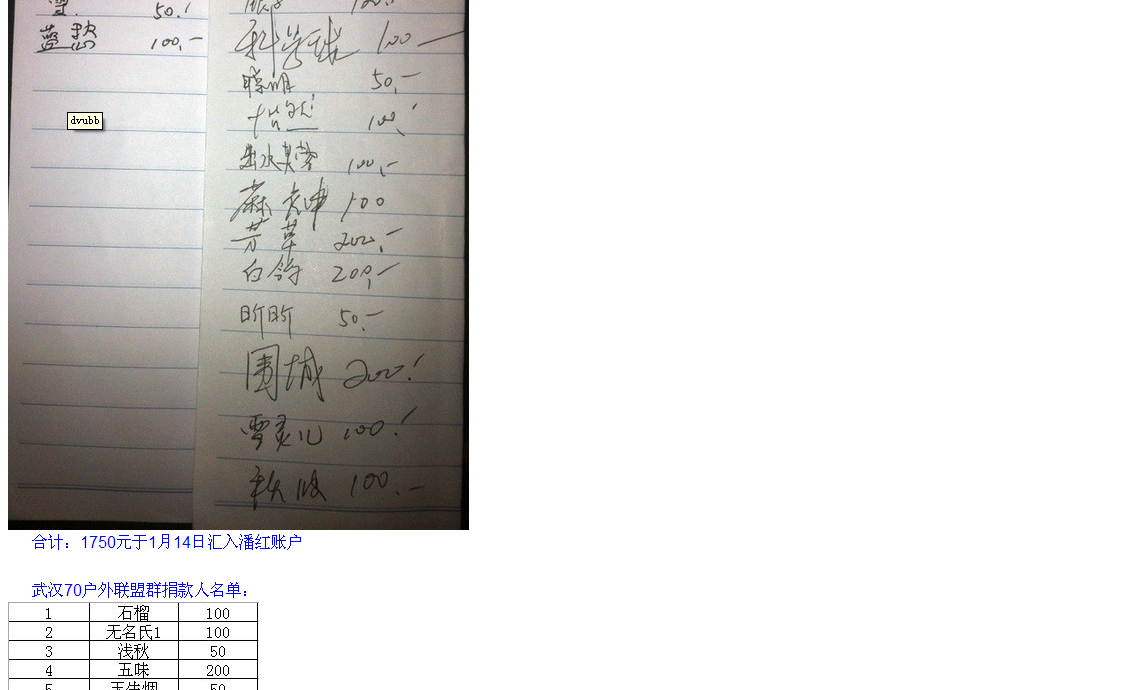 50.!
蓝 100,-
100
聪明 50,-
怡然 100,!
出水芙蓉 100,-
麻 100
芳草 200,-
白鸽 200,-
昕昕 50,-
围城 200.!
雪灵儿 100.!
秋波 100.-
dvubb
合计：1750元于1月14日汇入潘红账户
武汉70户外联盟群捐款人名单：
1 石榴 100
2 无名氏1 100
3 浅秋 50
4 五味 200
5 50